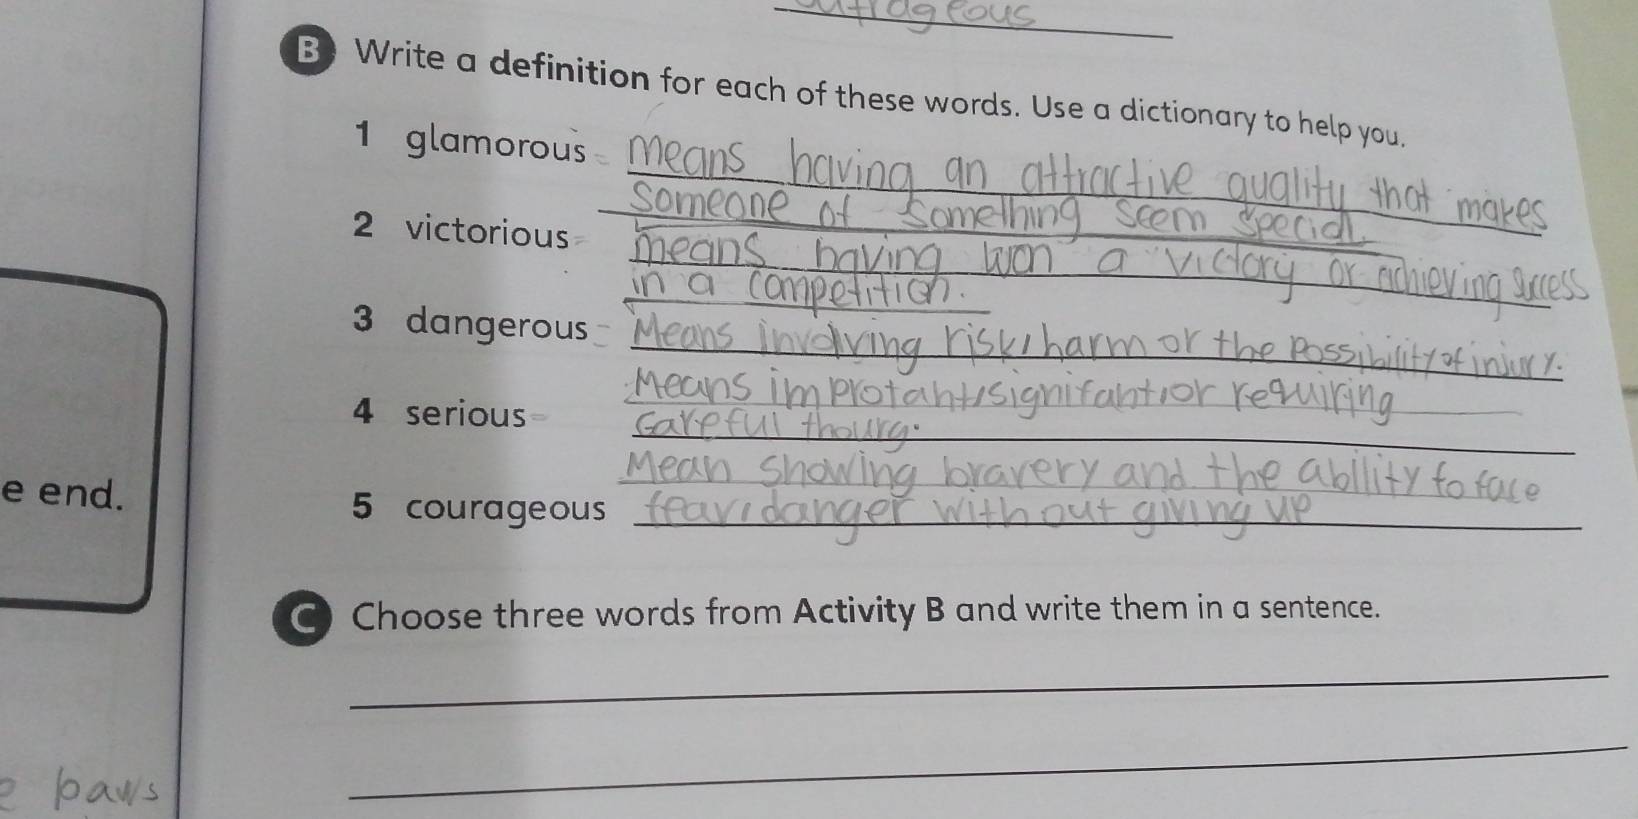 outrageous
B Write a definition for each of these words. Use a dictionary to help you.
1 glamorous - means having an attractive quality that makes
someone of something seem special.
2 victorious = means having won a victory or achieving success
in a competition.
3 dangerous - Means involving risk, harm or the possibility of injury.
Means improtant, signifant, or requiring
4 serious - careful thourg.
Mean showing bravery and the abillity to face
5 courageous fear, danger without giving up
e end.
C Choose three words from Activity B and write them in a sentence.
e paws